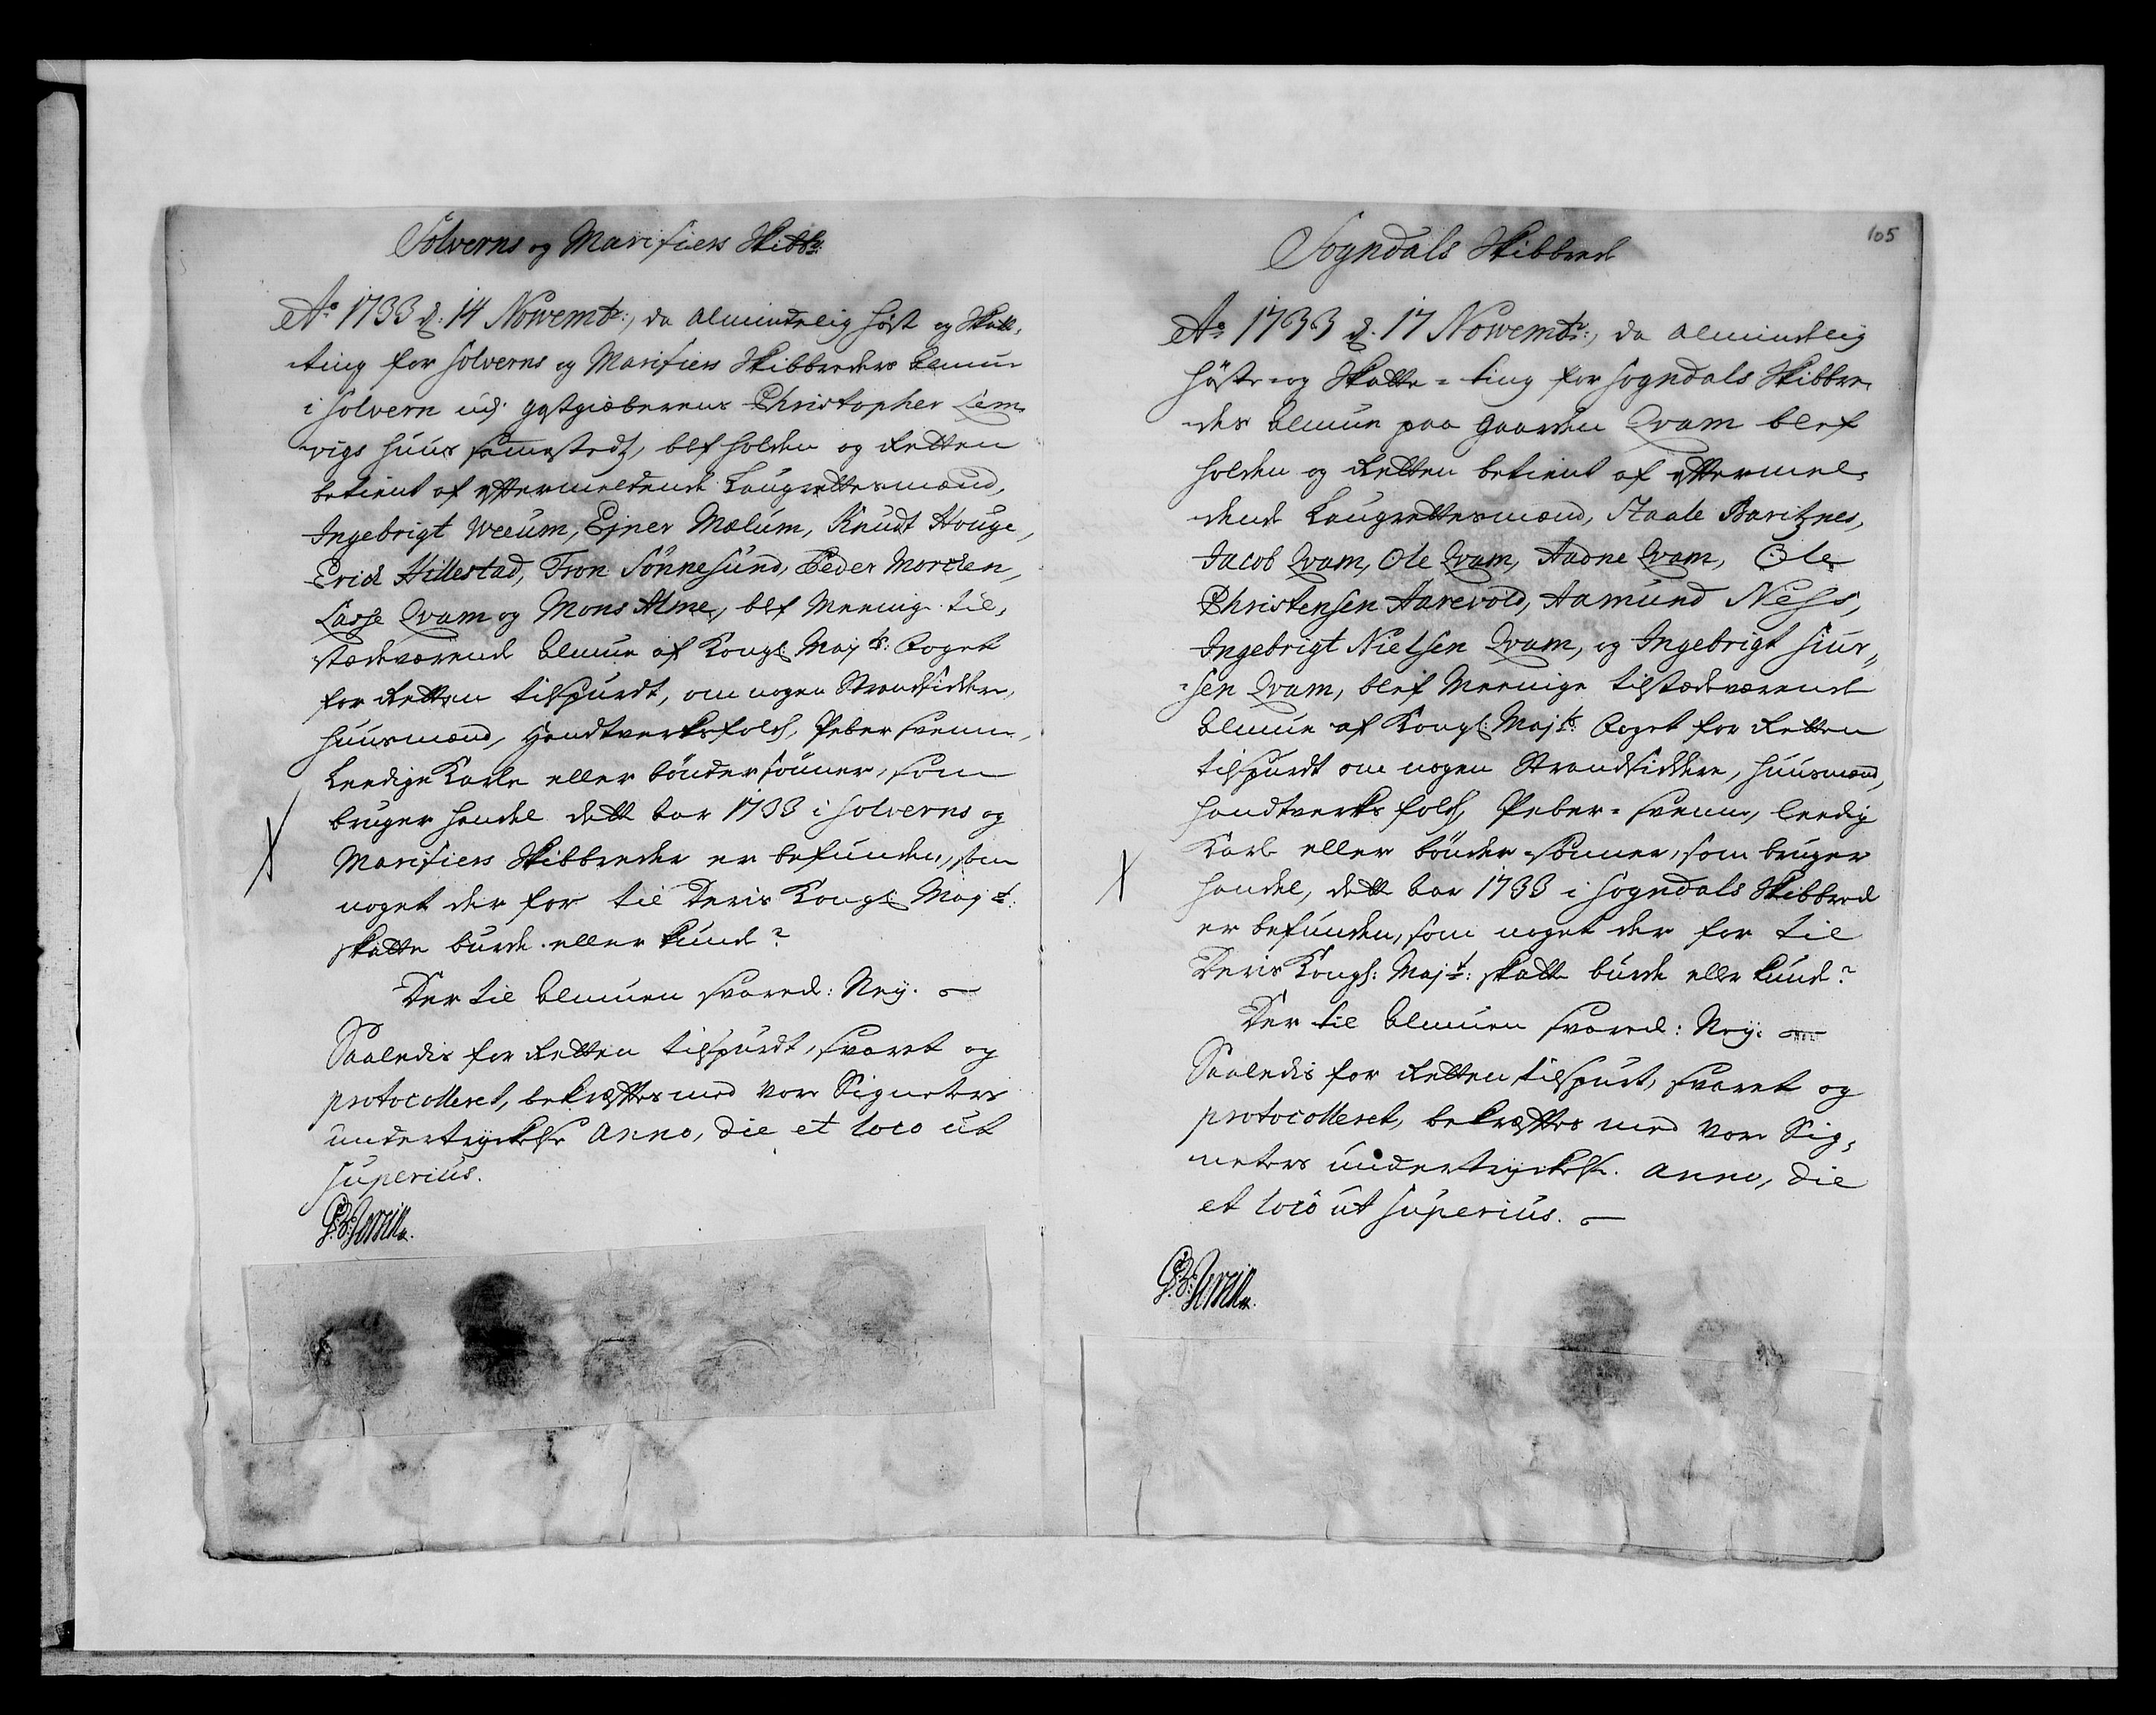 Solverns og Marifiers Skibbr:
Ao 1733 d: 14 Novembr:, da Almindelig Høst og Skatte,
ting for Solverns og Marifiers Skibbreders Almue
i Solvern udj giestgiæberens Christopher Lem,
vigs Huus sammestedtz, blef holden og Retten
betient af eftermeldende Laugrettesmænd,
Ingebrigt Weeum, Ejner Mælum, Knudt Houge,
Erick Hillestad, Tron Sønnesund, Peder Morden,
Lasse Qvam og Mons Alme, blef Meenige til,
stædeværende Almue af Kongl: Mayts: Foget
for Retten tilspurdt, om nogen Strandsiddere,
Huusmænd, Handtverksfolch, Peber Svenne,
Leedige Karle eller bønder sønner, som
bruger handel dette Aar 1733 i Solverns og
Marifiers Skibbreder er befunden, som
noget der for til Deris Kongl: Mayt:
skatte burde eller kunde?
Der til Almuen svarede: Ney.
Saaledis for Retten tilspurdt, svaret og
protocolleret, bekræftes med vore Signeters
undertryckelse Anno, die et loco ut
superius.
Sogndals Skibbrede
105
Ao 1733 d. 17 Novembr:, da Almindelig
Høste- og Skatte-ting for Sogndals Skibbre,
des Almue paa gaarden Qvam blef
holden og Retten betient af eftermel,
dende Laugrettesmænd, Staale Baritznes,
Jacob Qvam, Ole Qvam, Aadne Qvam, Ole
Christensen Aarevold, Aamund Ness,
Ingebrigt Nielsen Qvam, og Ingebrigt Siur,,
sen Qvam, blef Meenige tilstædeværende
Almue af Kongl: Mayts: Foget for Retten
tilspurdt om nogen Strandsiddere, Huusmænd,
Handtverks folch, Peber-svenne, leedig
Karle eller bønder-sønner, som bruger
handel, dette Aar 1733 i Sogndals Skibbrede
er befunden, som noget der for til
Deris Kongl: Mayt: skatte burde eller kunde?
Der til Almuen svarede: Ney.
Saaledis for Retten tilspurt, svaret og
protocolleret, bekræftes med vore Sig,
neters undertryckelse. Anno, die
et loco ut superius.